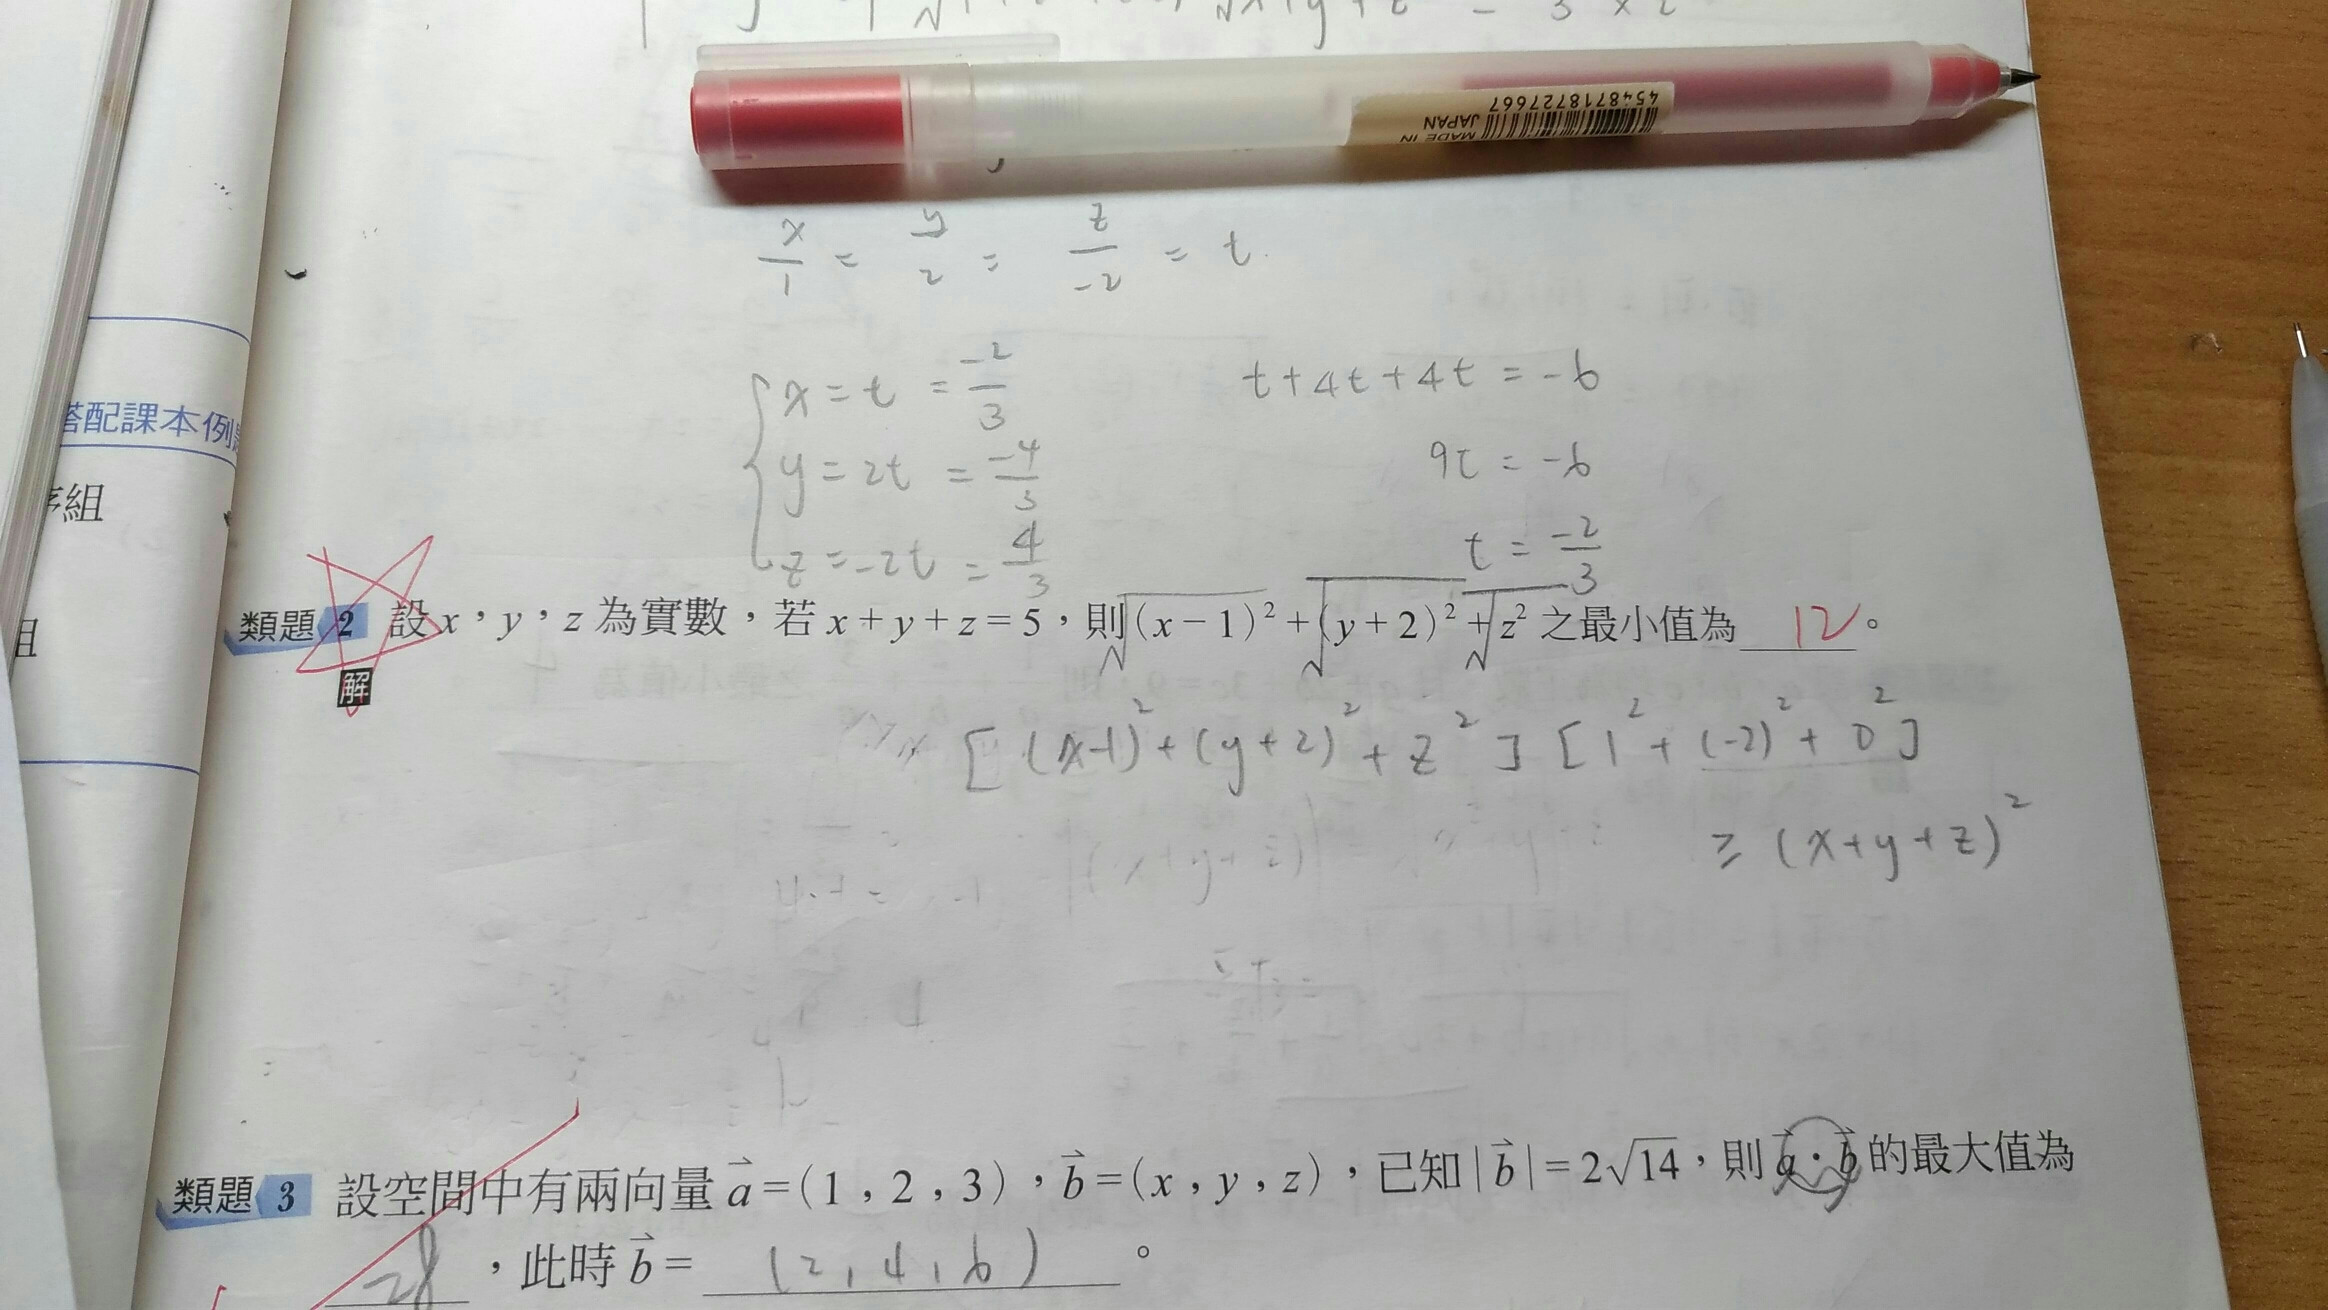 4548718727667
MADE IN JAPAN
x/1 = y/2 = z/-2 = t
x = t = -2/3
t + 4t + 4t = -6
y = 2t = -4/3
9t = -6
z = -2t = 4/3
t = -2/3
搭配課本例
序組
組
類題 2 設 x，y，z 為實數，若 x + y + z = 5，則 √(x − 1)² + √(y + 2)² + √z² 之最小值為 12。
解
[(x-1)² + (y+2)² + z²] [1² + (-2)² + 0²]
≥ (x+y+z)²
類題 3 設空間中有兩向量 a⃗ = (1, 2, 3)，b⃗ = (x, y, z)，已知 | b⃗ | = 2√14，則 a⃗ · b⃗ 的最大值為
28，此時 b⃗ = (2, 4, 6)。